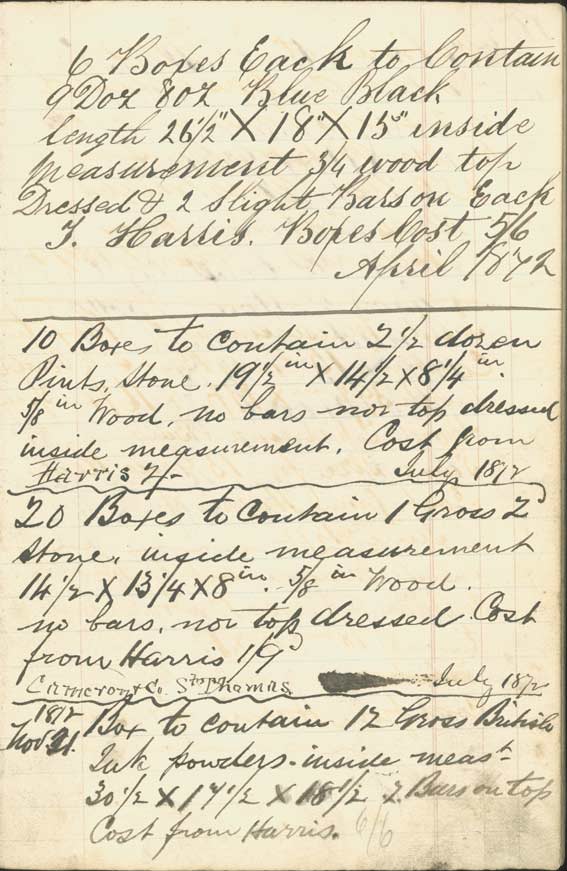 6 Boxes Each to Contain
9 Doz 8oz Blue Black
length 26½" X 18" X 15" inside
measurement 3/4 wood top
Dressed & 2 Slight Bars on Each
T. Harris. Boxes Cost 5/6
April 1872
10 Boxes to contain 2½ dozen
Pints, Stone. 19½ in X 14½ X 8¼ in.
5/8 in Wood, no bars nor top dressed
inside measurement. Cost from
Harris 2/- July 1872
20 Boxes to Contain 1 Gross 2
Stone. inside measurement
14½ X 13¼ X 8 in. 5/8 in Wood.
no bars, nor top dressed Cost
from Harris 1/9
Cameron & Co. St Thomas July 1872
1872 Box to contain 12 Gross British
Nov 21. Ink powders. inside meast
30½ X 17½ X 18½ 2 Bars on top
Cost from Harris. 6/6